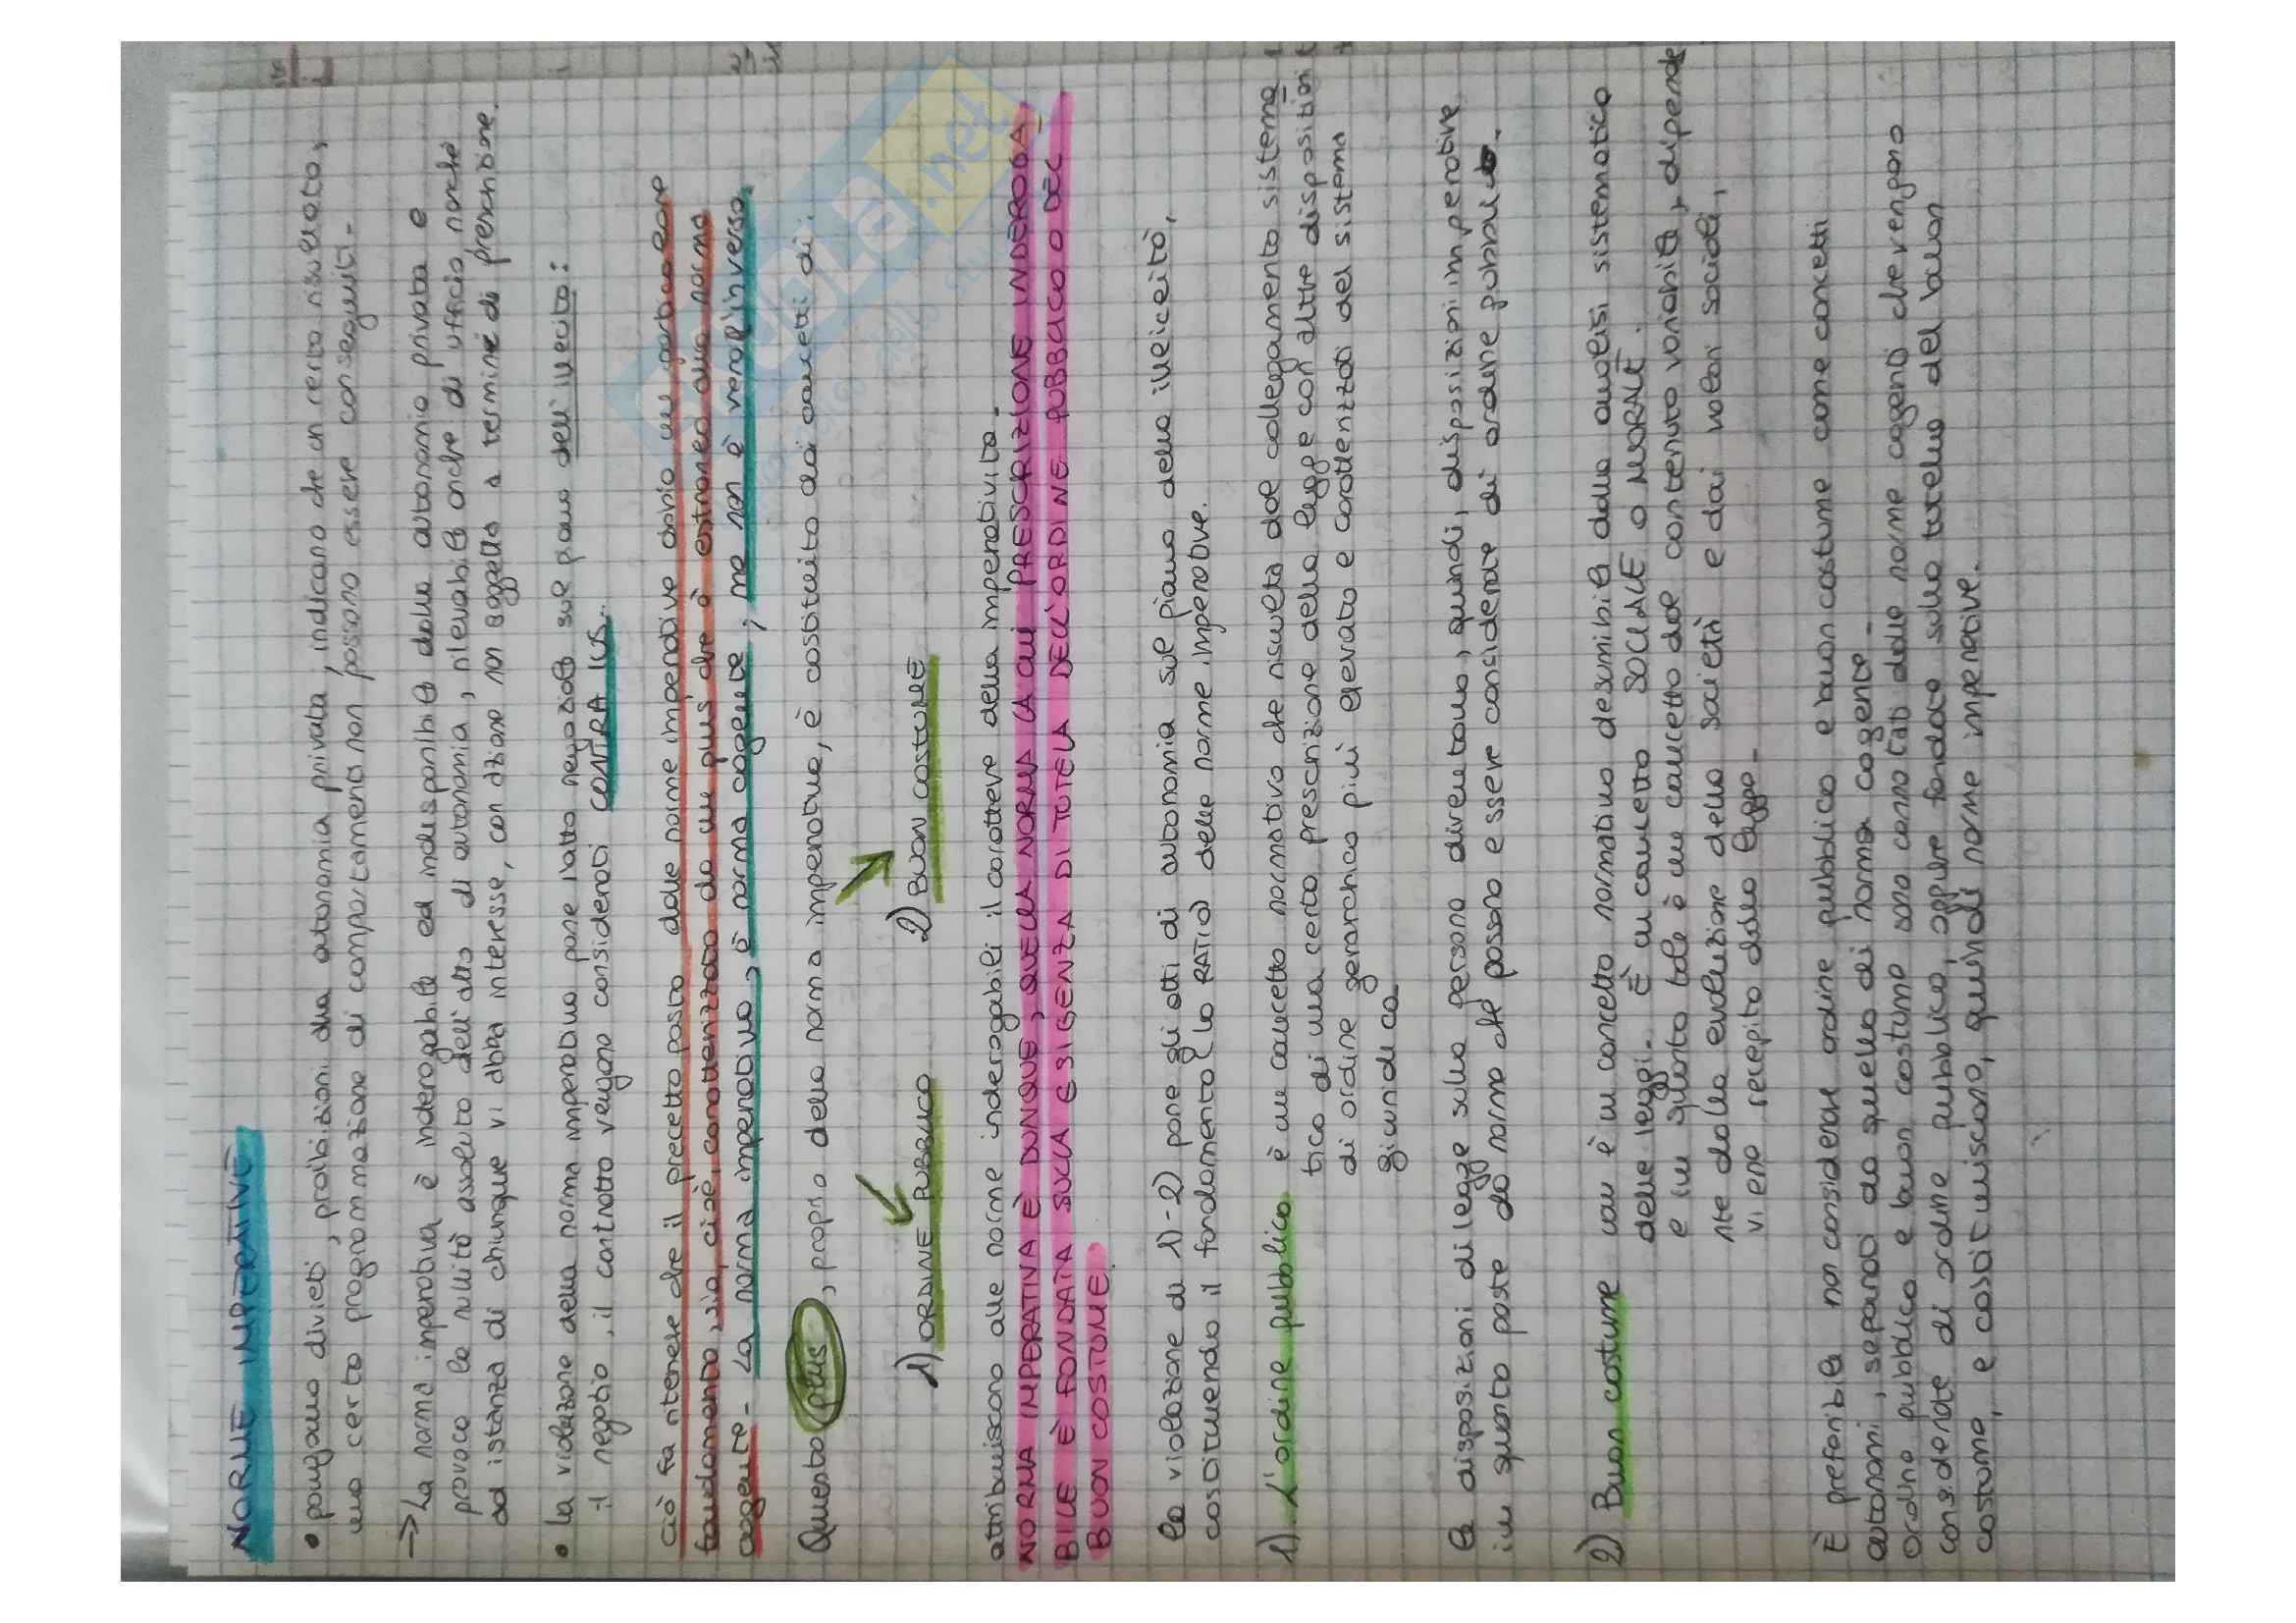 NORME IMPERATIVE
• pongono divieti, proibizioni alla autonomia privata, indicano che un certo risultato,
una certa programmazione di comportamenti non possono essere conseguiti-
→ La norma imperativa è inderogabile ed indisponibile dalla autonomia privata e
provoca la nullità assoluta dell'atto di autonomia, rilevabile anche di ufficio, nonché
ad istanza di chiunque vi abbia interesse, con azione non soggetta a termine di prescrizione.
• la violazione della norma imperativa pone l'atto negoziale sul piano dell'illecito:
il negozio, il contratto vengono considerati CONTRA IUS.
ciò fa ritenere che il precetto posto dalle norme imperative abbia un particolare
fondamento, sia, cioè, caratterizzato da un plus che è estraneo alla norma
cogente- La norma imperativa, è norma cogente; ma non è vero l'inverso.
Questo plus, proprio della norma imperativa, è costituito dai concetti di:
1) ORDINE PUBBLICO 2) BUON COSTUME
attribuiscono alle norme inderogabili il carattere della imperatività-
NORMA IMPERATIVA È DUNQUE, QUELLA NORMA LA CUI PRESCRIZIONE INDEROGA_
BILE È FONDATA SULLA ESIGENZA DI TUTELA DELL'ORDINE PUBBLICO O DEL
BUON COSTUME.
la violazione di 1)-2) pone gli atti di autonomia sul piano della illiceità,
costituendo il fondamento (la RATIO) delle norme imperative.
1) L'ordine pubblico è un concetto normativo che risulta dal collegamento sistema
tico di una certa prescrizione della legge con altre disposizioni
di ordine gerarchico più elevato e caratterizzati del sistema
giuridico-
le disposizioni di legge sulla persona diventano, quindi, disposizioni imperative
in quanto poste da norme che possono essere considerate di ordine pubblico-
2) Buon costume è un concetto normativo desumibile dalla analisi sistematica
delle leggi- È un concetto SOCIALE o MORALE.
e in quanto tale è un concetto dal contenuto variabile, dipende
nte dalla evoluzione della società e dai valori sociali,
viene recepito dalla legge-
È preferibile non considerare ordine pubblico e buon costume come concetti
autonomi, separati da quello di norma cogente-
Ordine pubblico e buon costume sono connotati dalle norme cogenti che vengono
considerate di ordine pubblico, oppure fondate sulla tutela del buon
costume, e costituiscono, quindi norme imperative.